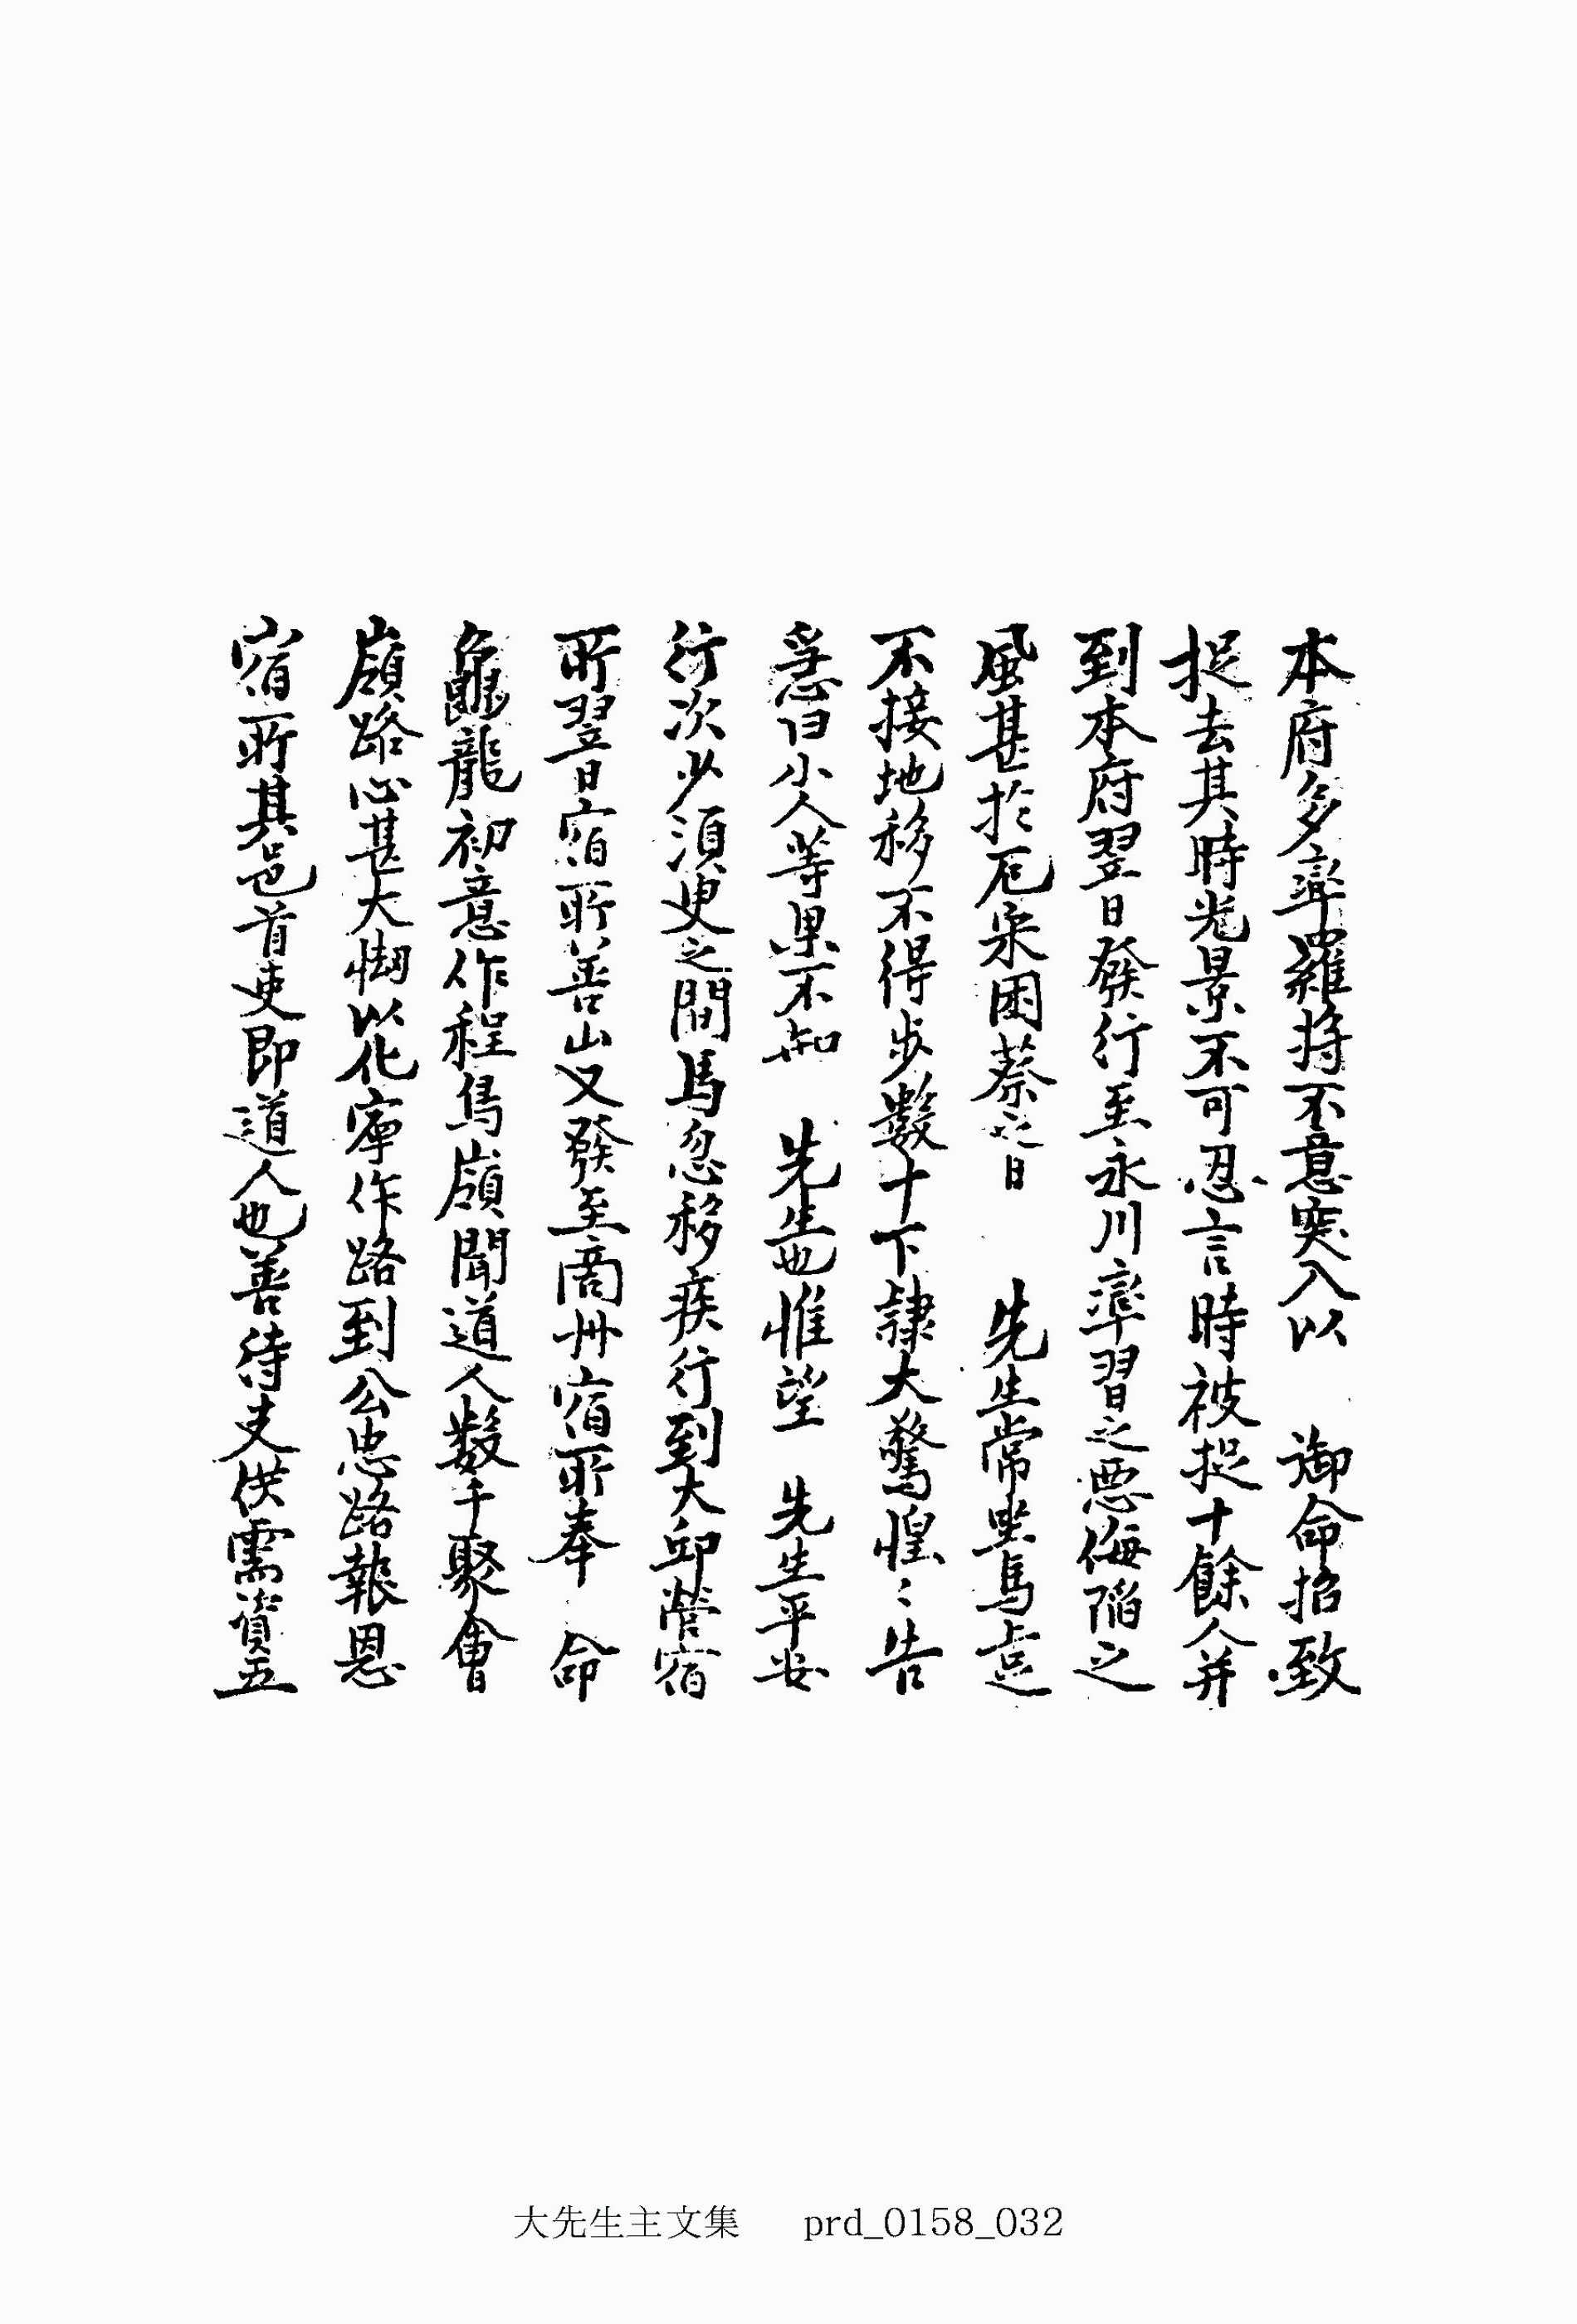 本府多率羅將不意突入以 御命招致
捉去其時光景不可忍言時被捉十餘人并
到本府翌日發行至永川率習之惡侮陷之
風甚於厄宋困蔡之日 先生常坐馬
不接地移不得步數十下隸大驚惶〻告
急曰小人等果不知 先生也惟望 先生平安
行次少須臾之間馬忽移疾行到大邱營宿
所翌日宿所善山又發至商州宿所奉 命
龜龍初意作程鳥嶺聞道人數千聚會
嶺路心甚大惘以化寧作路到公忠路報恩
宿所其邑首吏即道人也善待支供需資五
大先生主文集 prd_0158_032